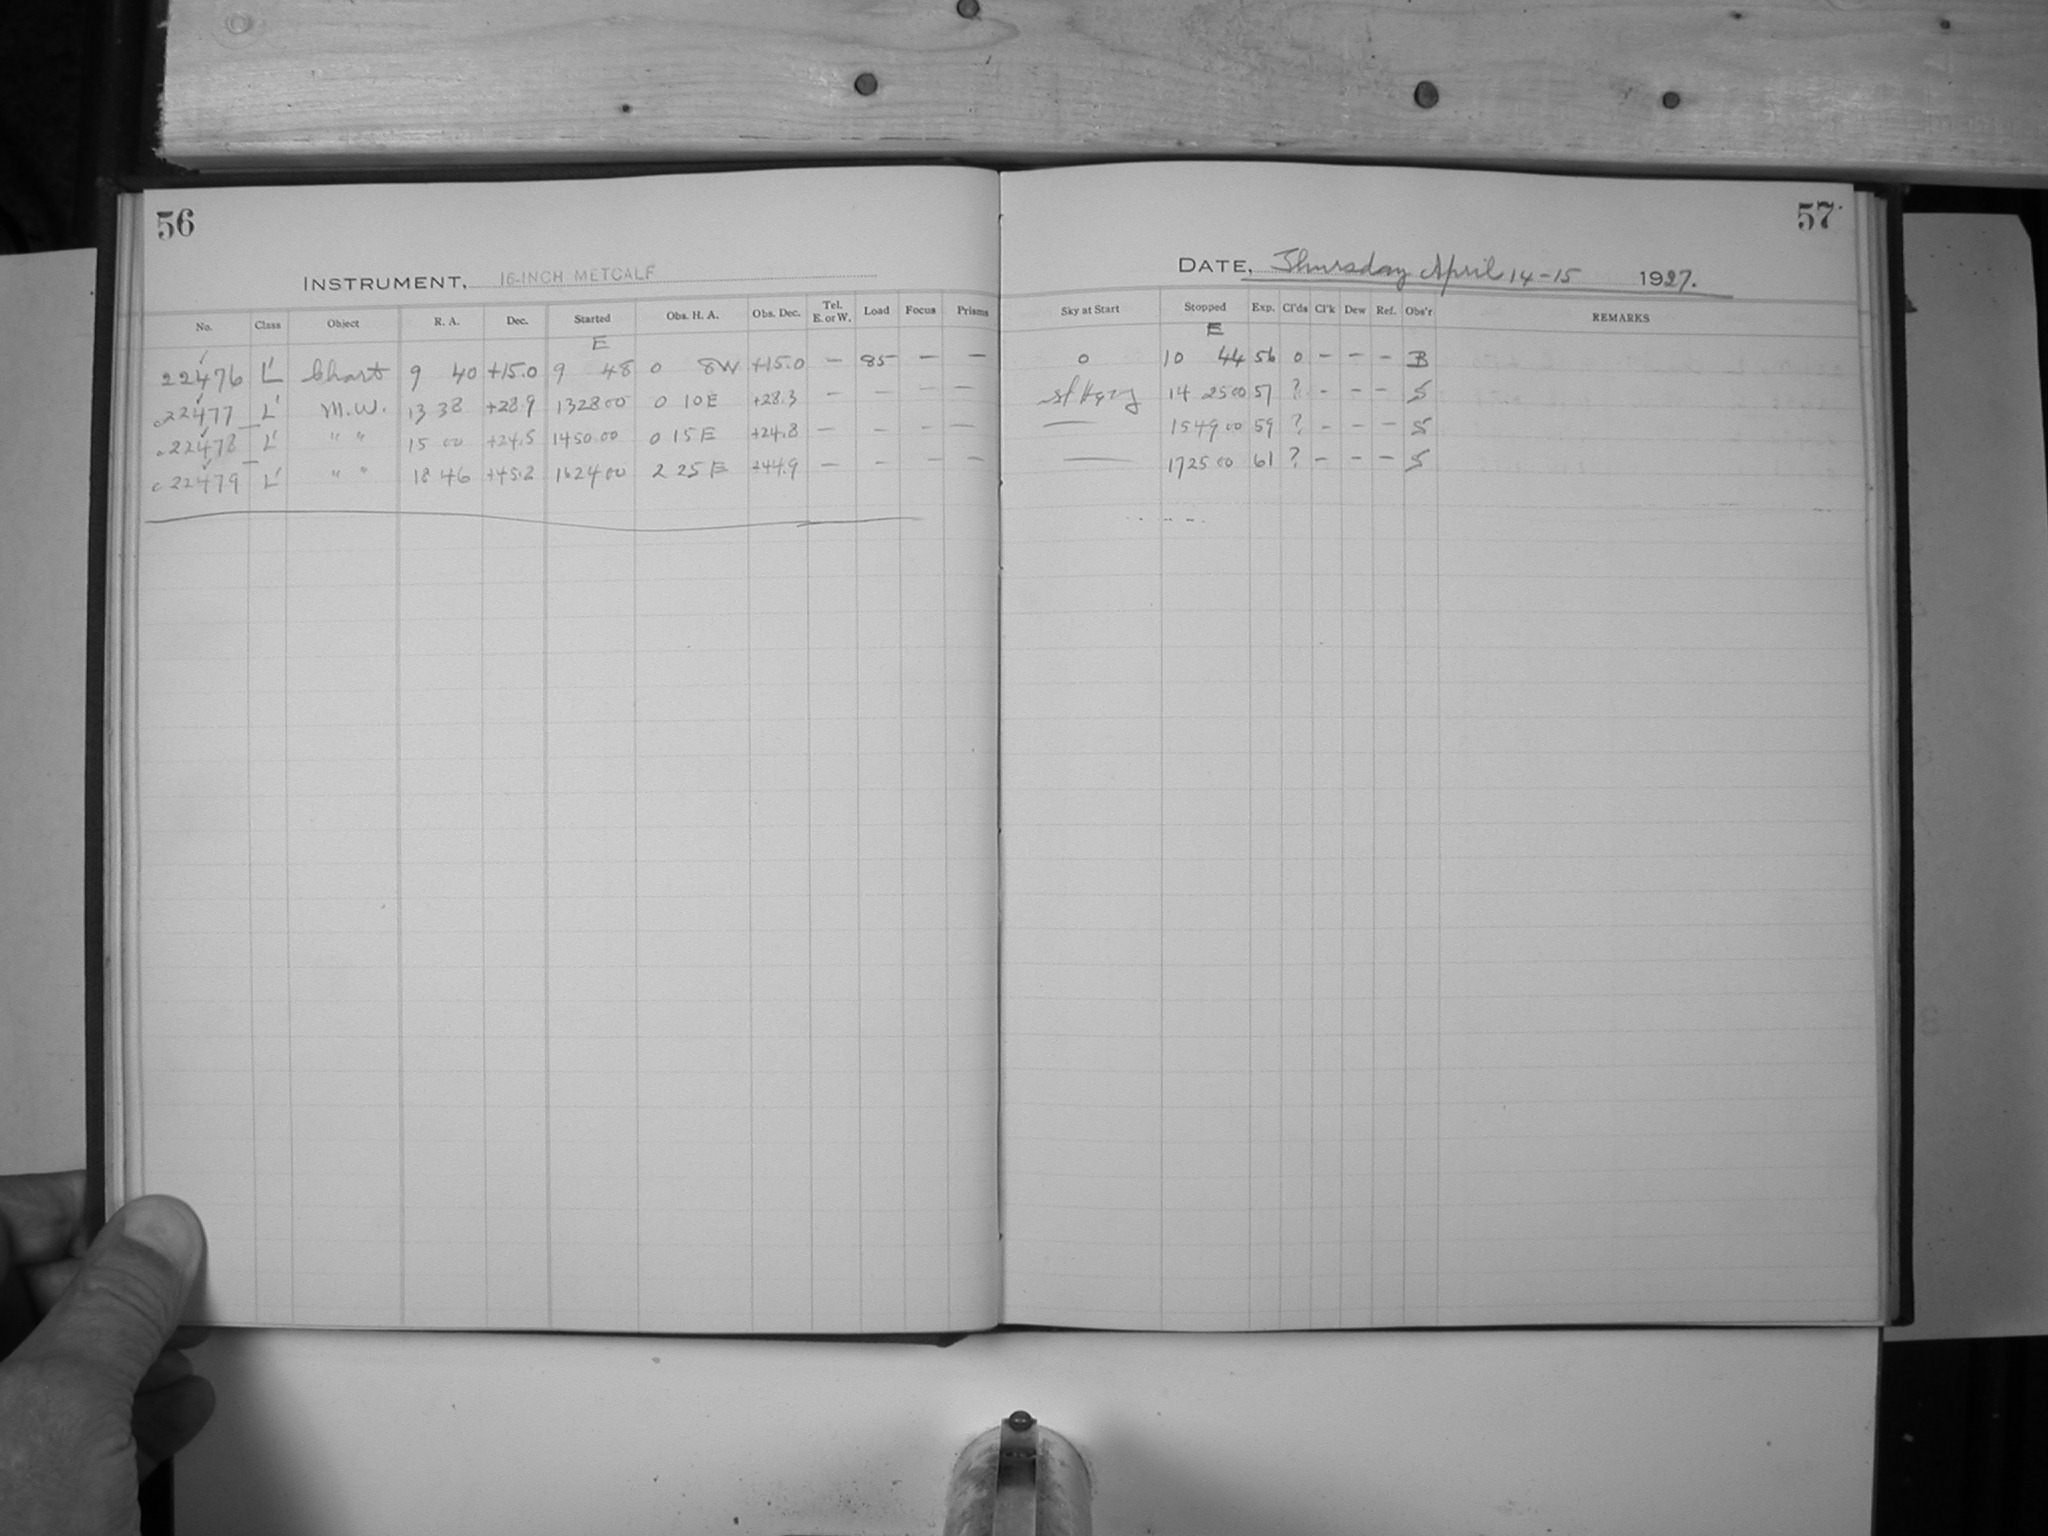 56
INSTRUMENT, 16-INCH METCALF
No. Class Object R. A. Dec. Started Obs. H. A. Obs. Dec. Tel. E. or W. Load Focus Prisms
E
22476 L' Chart 9 40 +15.0 9 48 0 8W +15.0 — 85 — —
22477 L' M.W. 13 38 +28.9 13 28 00 0 10 E +28.3 — - — —
22478 L' " " 15 00 +24.5 14 50 00 0 15 E +24.8 — - - —
22479 L' " " 18 46 +45.2 16 24 00 2 25 E +44.9 — - - —
57
DATE, Thursday April 14-15 1927.
Sky at Start Stopped Exp. Cl'ds Cl'k Dew Ref. Obs'r REMARKS
E
0 10 44 56 0 - - - B
sl Hazy 14 25 00 57 ? - - - S
— 15 49 00 59 ? - - - S
— 17 25 00 61 ? - - - S